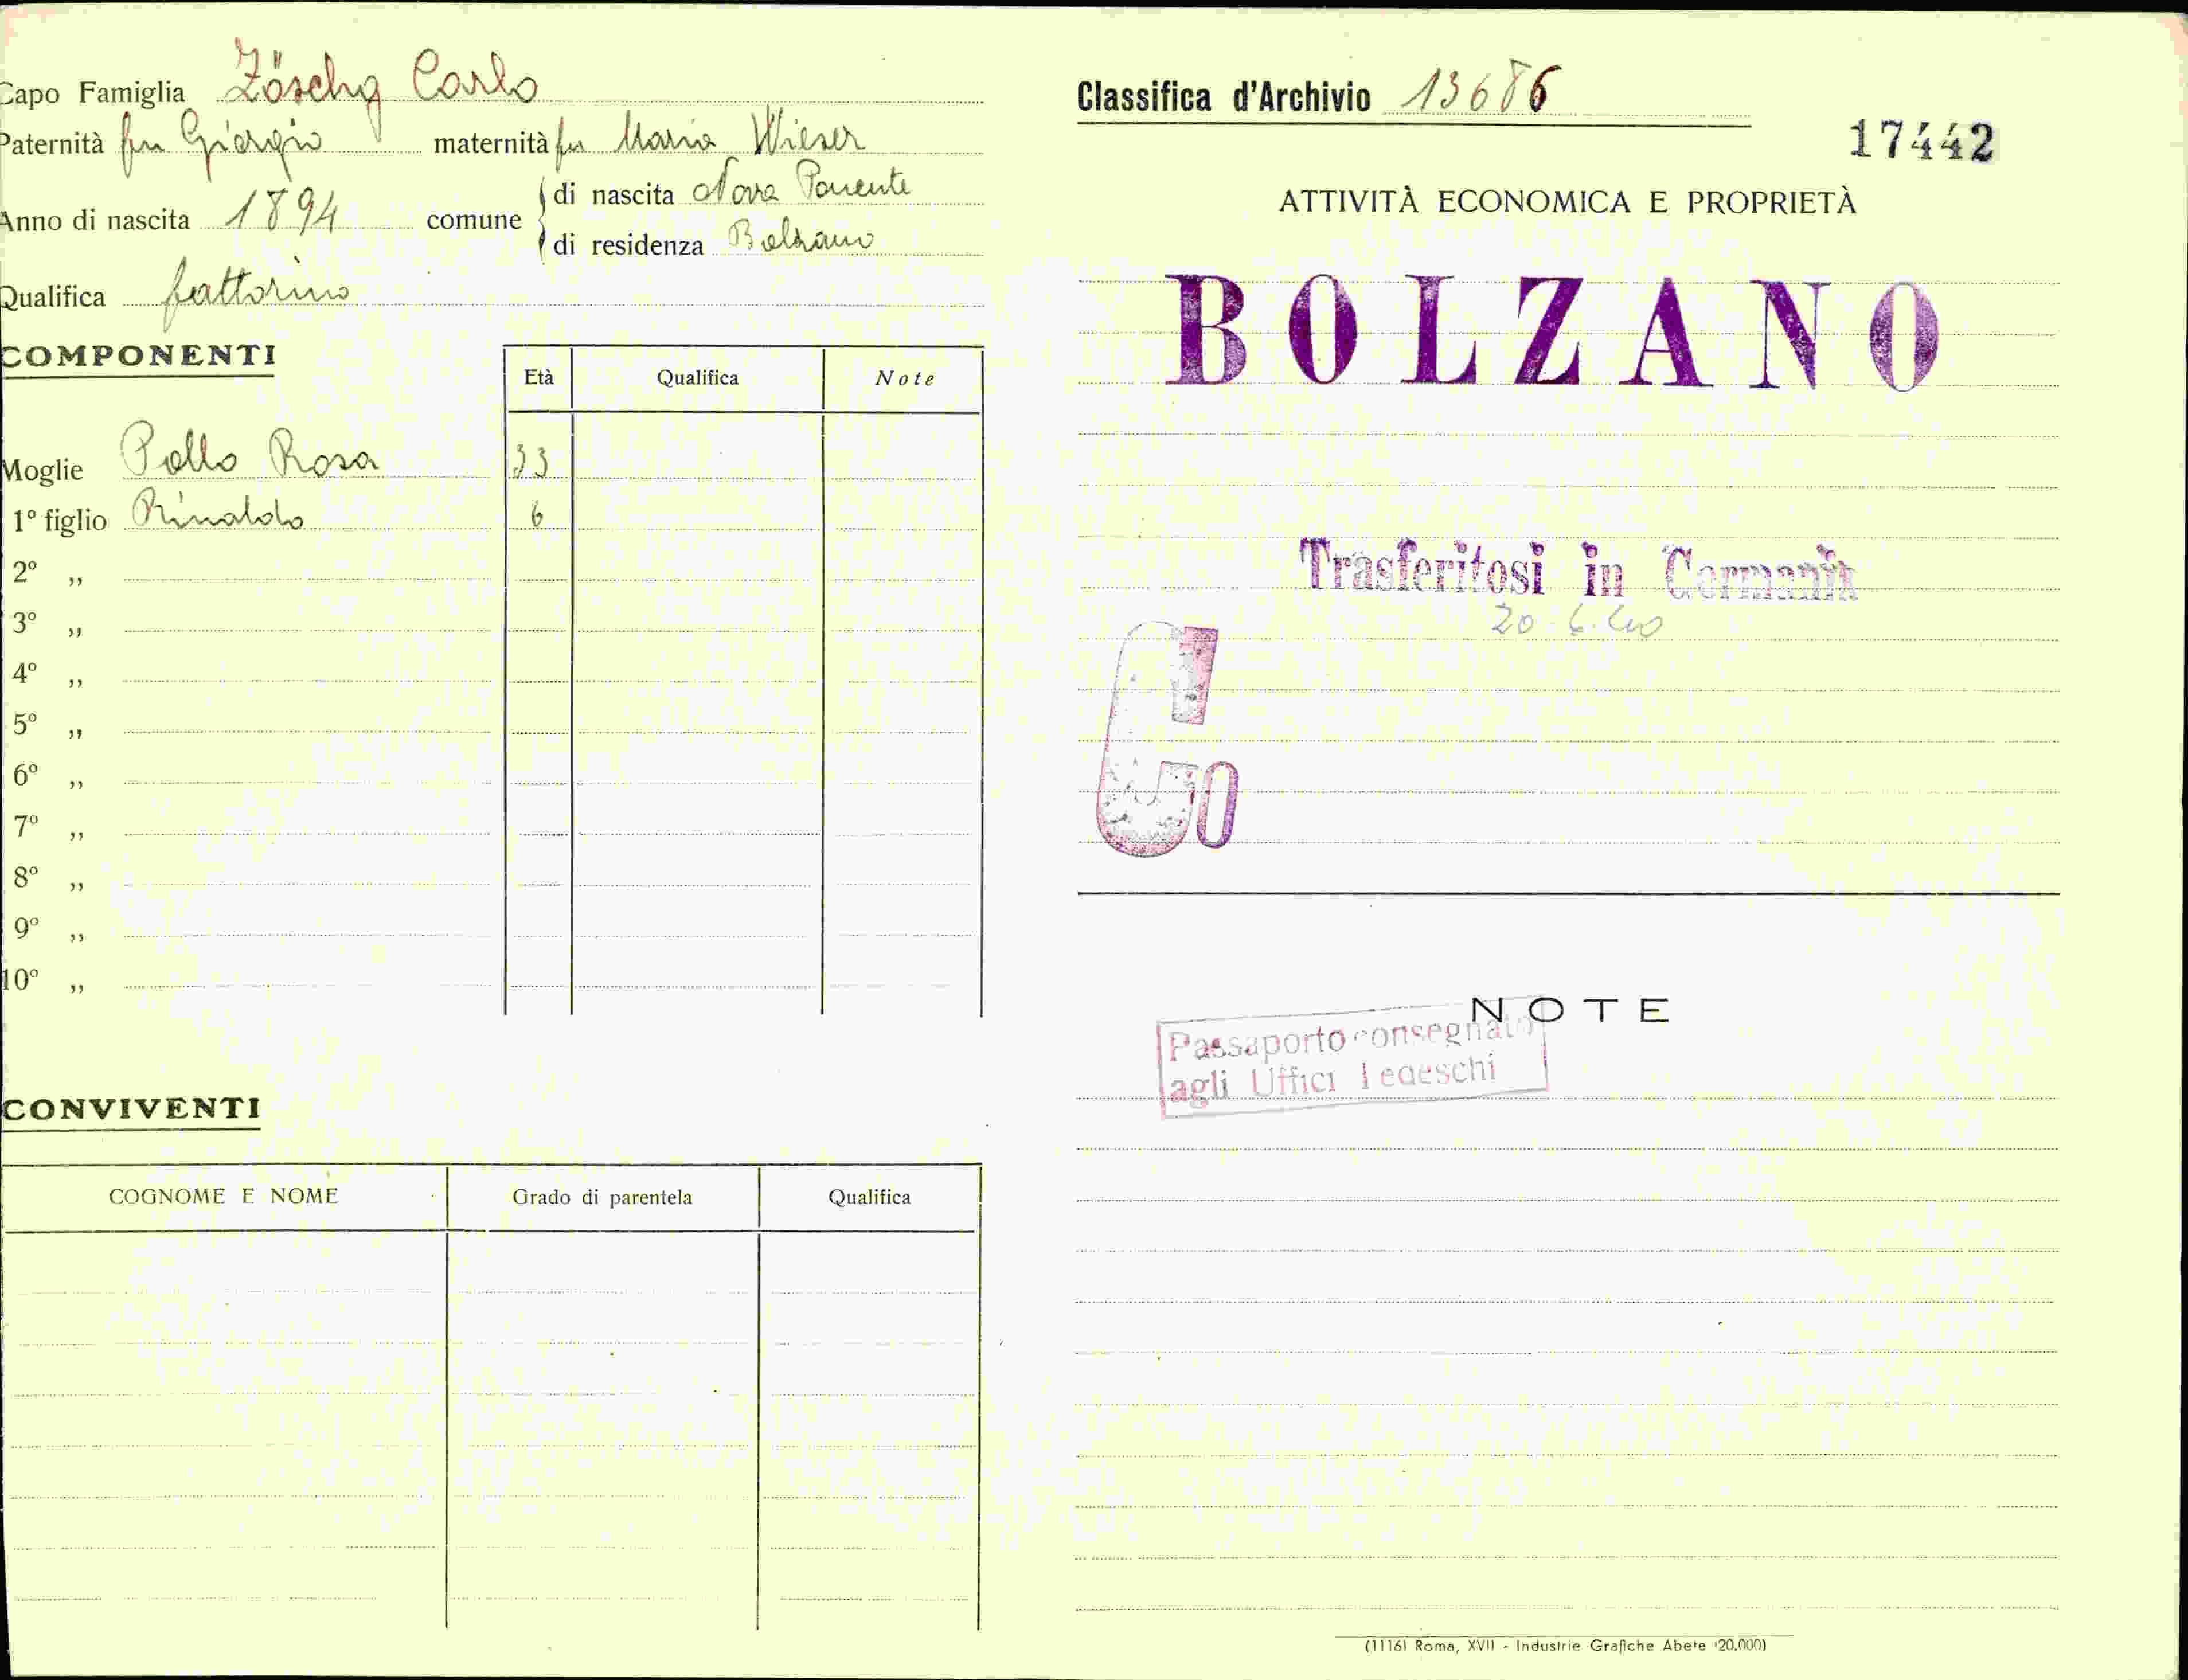 Capo Famiglia Zöschg Carlo
Paternità fu Giorgio maternità fu Maria Wieser
Anno di nascita 1894 comune di nascita Nova Ponente
di residenza Bolzano
Qualifica fattorino
COMPONENTI
Età Qualifica Note
Moglie Pollo Rosa 33
1º figlio Rinaldo 6
2º ,,
3º ,,
4º ,,
5º ,,
6º ,,
7º ,,
8º ,,
9º ,,
10º ,,
CONVIVENTI
COGNOME E NOME Grado di parentela Qualifica
Classifica d'Archivio 13686
17442
ATTIVITÀ ECONOMICA E PROPRIETÀ
BOLZANO
Trasferitosi in Germania
20.6.40
NOTE
Passaporto consegnato
agli Uffici Tedeschi
(1116) Roma, XVII - Industrie Grafiche Abete (20.000)